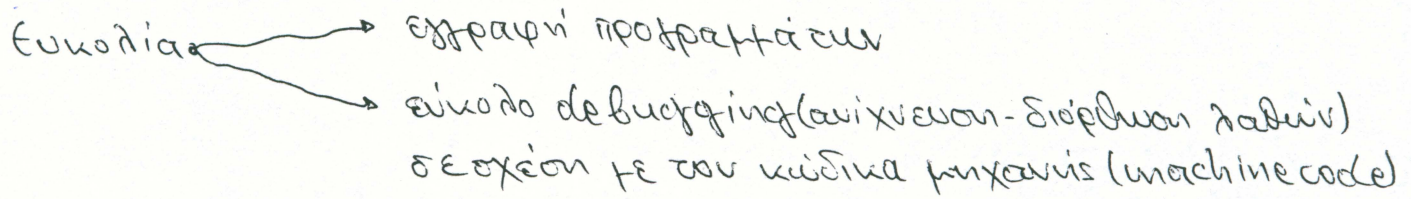 Ευκολία εγγραφή προγραμμάτων
εύκολο debugging (ανίχνευση - διόρθωση λαθών)
σε σχέση με τον κώδικα μηχανής (machine code)